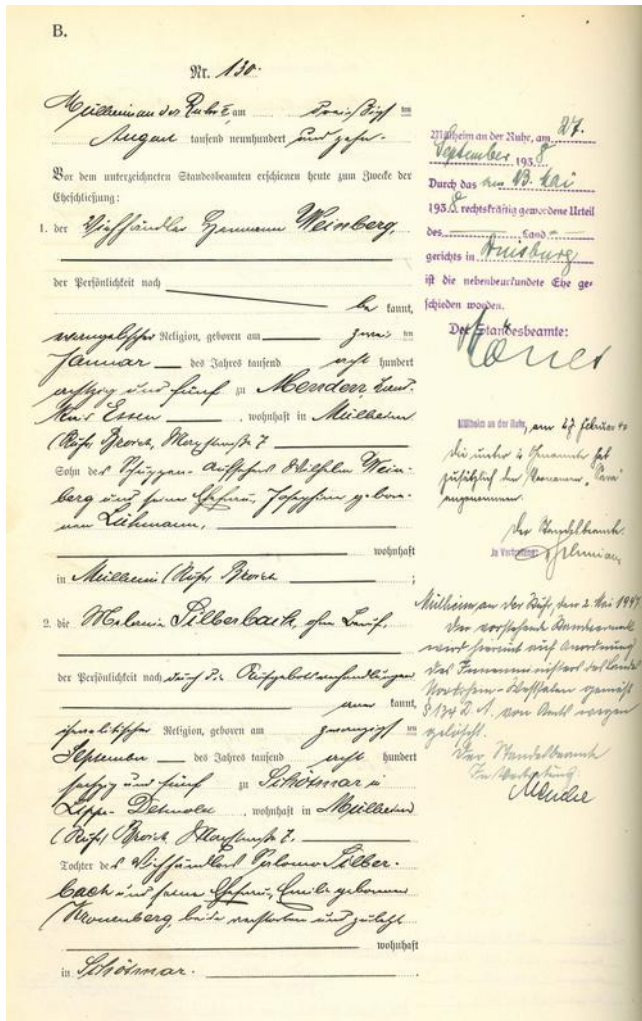 B.
Nr. 130.
Mülheim an der Ruhr, am dreißigsten
August tausend neunhundert und zehn.
Vor dem unterzeichneten Standesbeamten erschienen heute zum Zwecke der
Eheschließung:
1. der Viehhändler Hermann Weinberg,
der Persönlichkeit nach
be kannt,
evangelischer Religion, geboren am zwei ten
Januar des Jahres tausend acht hundert
achtzig und fünf zu Menden, Land-
kreis Essen, wohnhaft in Mülheim
(Ruhr) Broich,
Sohn des Wilhelm Wein-
berg und seiner Ehefrau, Josephine gebore-
nen Lühmann,
wohnhaft
in Mülheim (Ruhr) Broich ;
2. die Melanie Silberbach, ohne Beruf,
der Persönlichkeit nach durch die Aufgebotsverhandlungen
aner kannt,
israelitischer Religion, geboren am zwanzigsten
September des Jahres tausend acht hundert
sechzig und fünf zu Schötmar in
Lippe-Detmold, wohnhaft in Mülheim
(Ruhr) Broich,
Tochter des Viehhändlers Salomo Silber-
bach und seiner Ehefrau, Emilie geborenen
Kronenberg, beide verstorben und zuletzt
wohnhaft
in Schötmar.
Mülheim an der Ruhr, am 27.
September 1938
Durch das am 13. Mai
1938 rechtskräftig gewordene Urteil
des Land
gerichts in Duisburg
ist die nebenbeurkundete Ehe ge-
schieden worden.
Der Standesbeamte:
Mülheim an der Ruhr, am 27 Februar 40
Die unter 2 Genannte hat
zusätzlich den Vornamen „Sara"
angenommen.
Der Standesbeamte.
In Vertretung:
Mülheim an der Ruhr, den 2. Mai 1947
Der vorstehende Randvermerk
wird hiermit auf Anordnung
des Innenministers des Landes
Nordrhein-Westfalen gemäß
von Amts wegen
gelöscht.
Der Standesbeamte
In Vertretung: